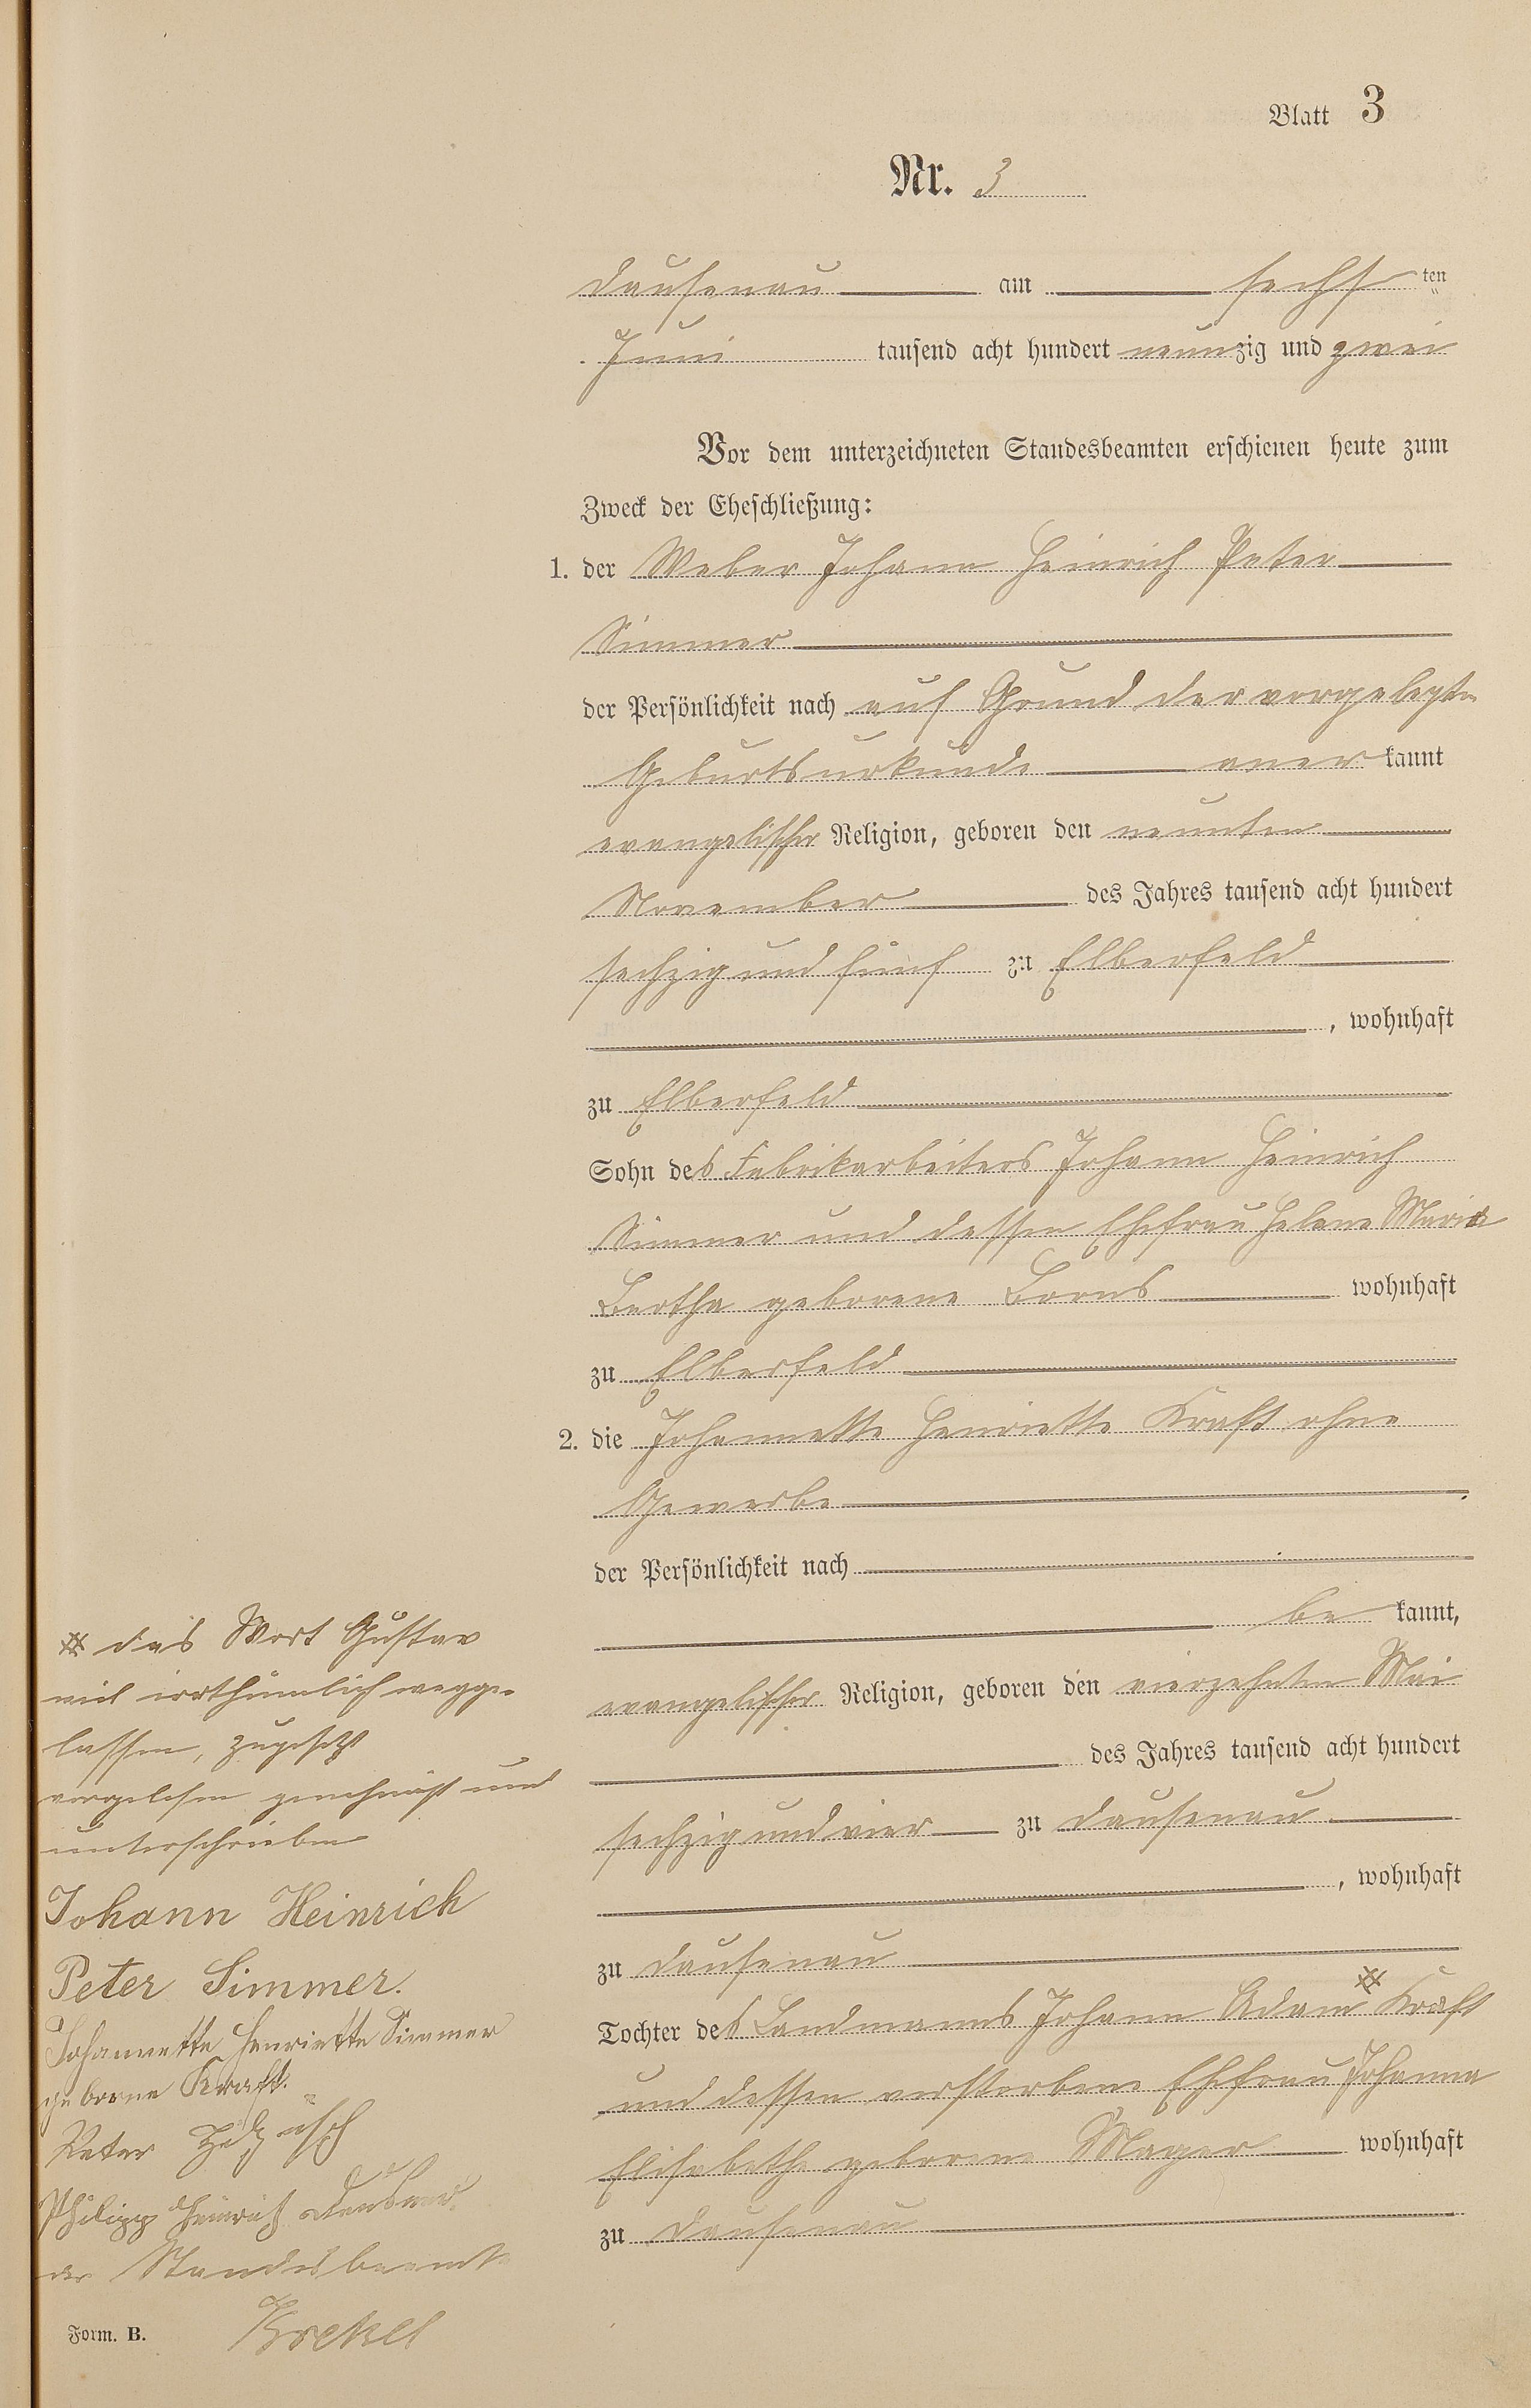 Blatt 3
Nr. 3
Dausenau am sechs ten
Juni tausend acht hundert neunzig und zwei
Vor dem unterzeichneten Standesbeamten erschienen heute zum
Zweck der Eheschließung:
1. der Weber Johann Heinrich Peter
Simmer
der Persönlichkeit nach auf Grund der vorgelegten
Geburtsurkunde aner kannt
evangelischer Religion, geboren den neunten
November des Jahres tausend acht hundert
sechzig und fünf zu Elberfeld
, wohnhaft
zu Elberfeld
Sohn des Fabrikarbeiters Johann Heinrich
Simmer und dessen Ehefrau Helene Maria
Bertha geborene Borns wohnhaft
zu Elberfeld
2. die Johannette Henriette Kraft ohne
Gewerbe
der Persönlichkeit nach
be kannt,
evangelischer Religion, geboren den vierzehnten Mai
des Jahres tausend acht hundert
sechzig und vier zu Dausenau
, wohnhaft
zu Dausenau
Tochter des Landmanns Johann Adam # Kraft
und dessen verstorbene Ehefrau Johanna
Elisabethe geborene Mager wohnhaft
zu Dausenau
# das Wort Gustav
wird irrthümlich wegge-
lassen, zugesetzt
vorgelesen genehmigt und
unterschrieben
Johann Heinrich
Peter Simmer.
Johannette Henriette Simmer
geborne Kraft.
Peter
Philipp Heinrich
der Standesbeamte
Krekel
Form. B.